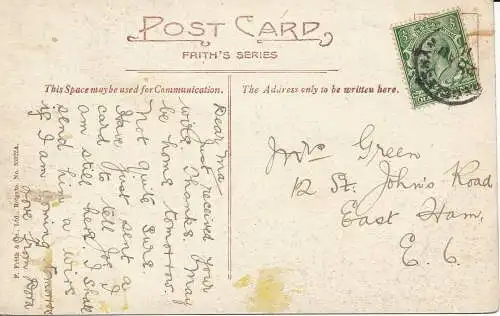 POST CARD
FRITH'S SERIES
This Space may be used for Communication.
The Address only to be written here.
Dear Ma
Just received your
wire Thanks. May
be home tomorrow.
Not quite sure
Have just sent a
card to tell Joe I
am still here. I shall
send him a wire
if I am coming tomorrow
Love from
Mrs Green
12 St. John's Road
East Ham.
E. 6.
F. Frith & Co., Ltd., Reigate. No.